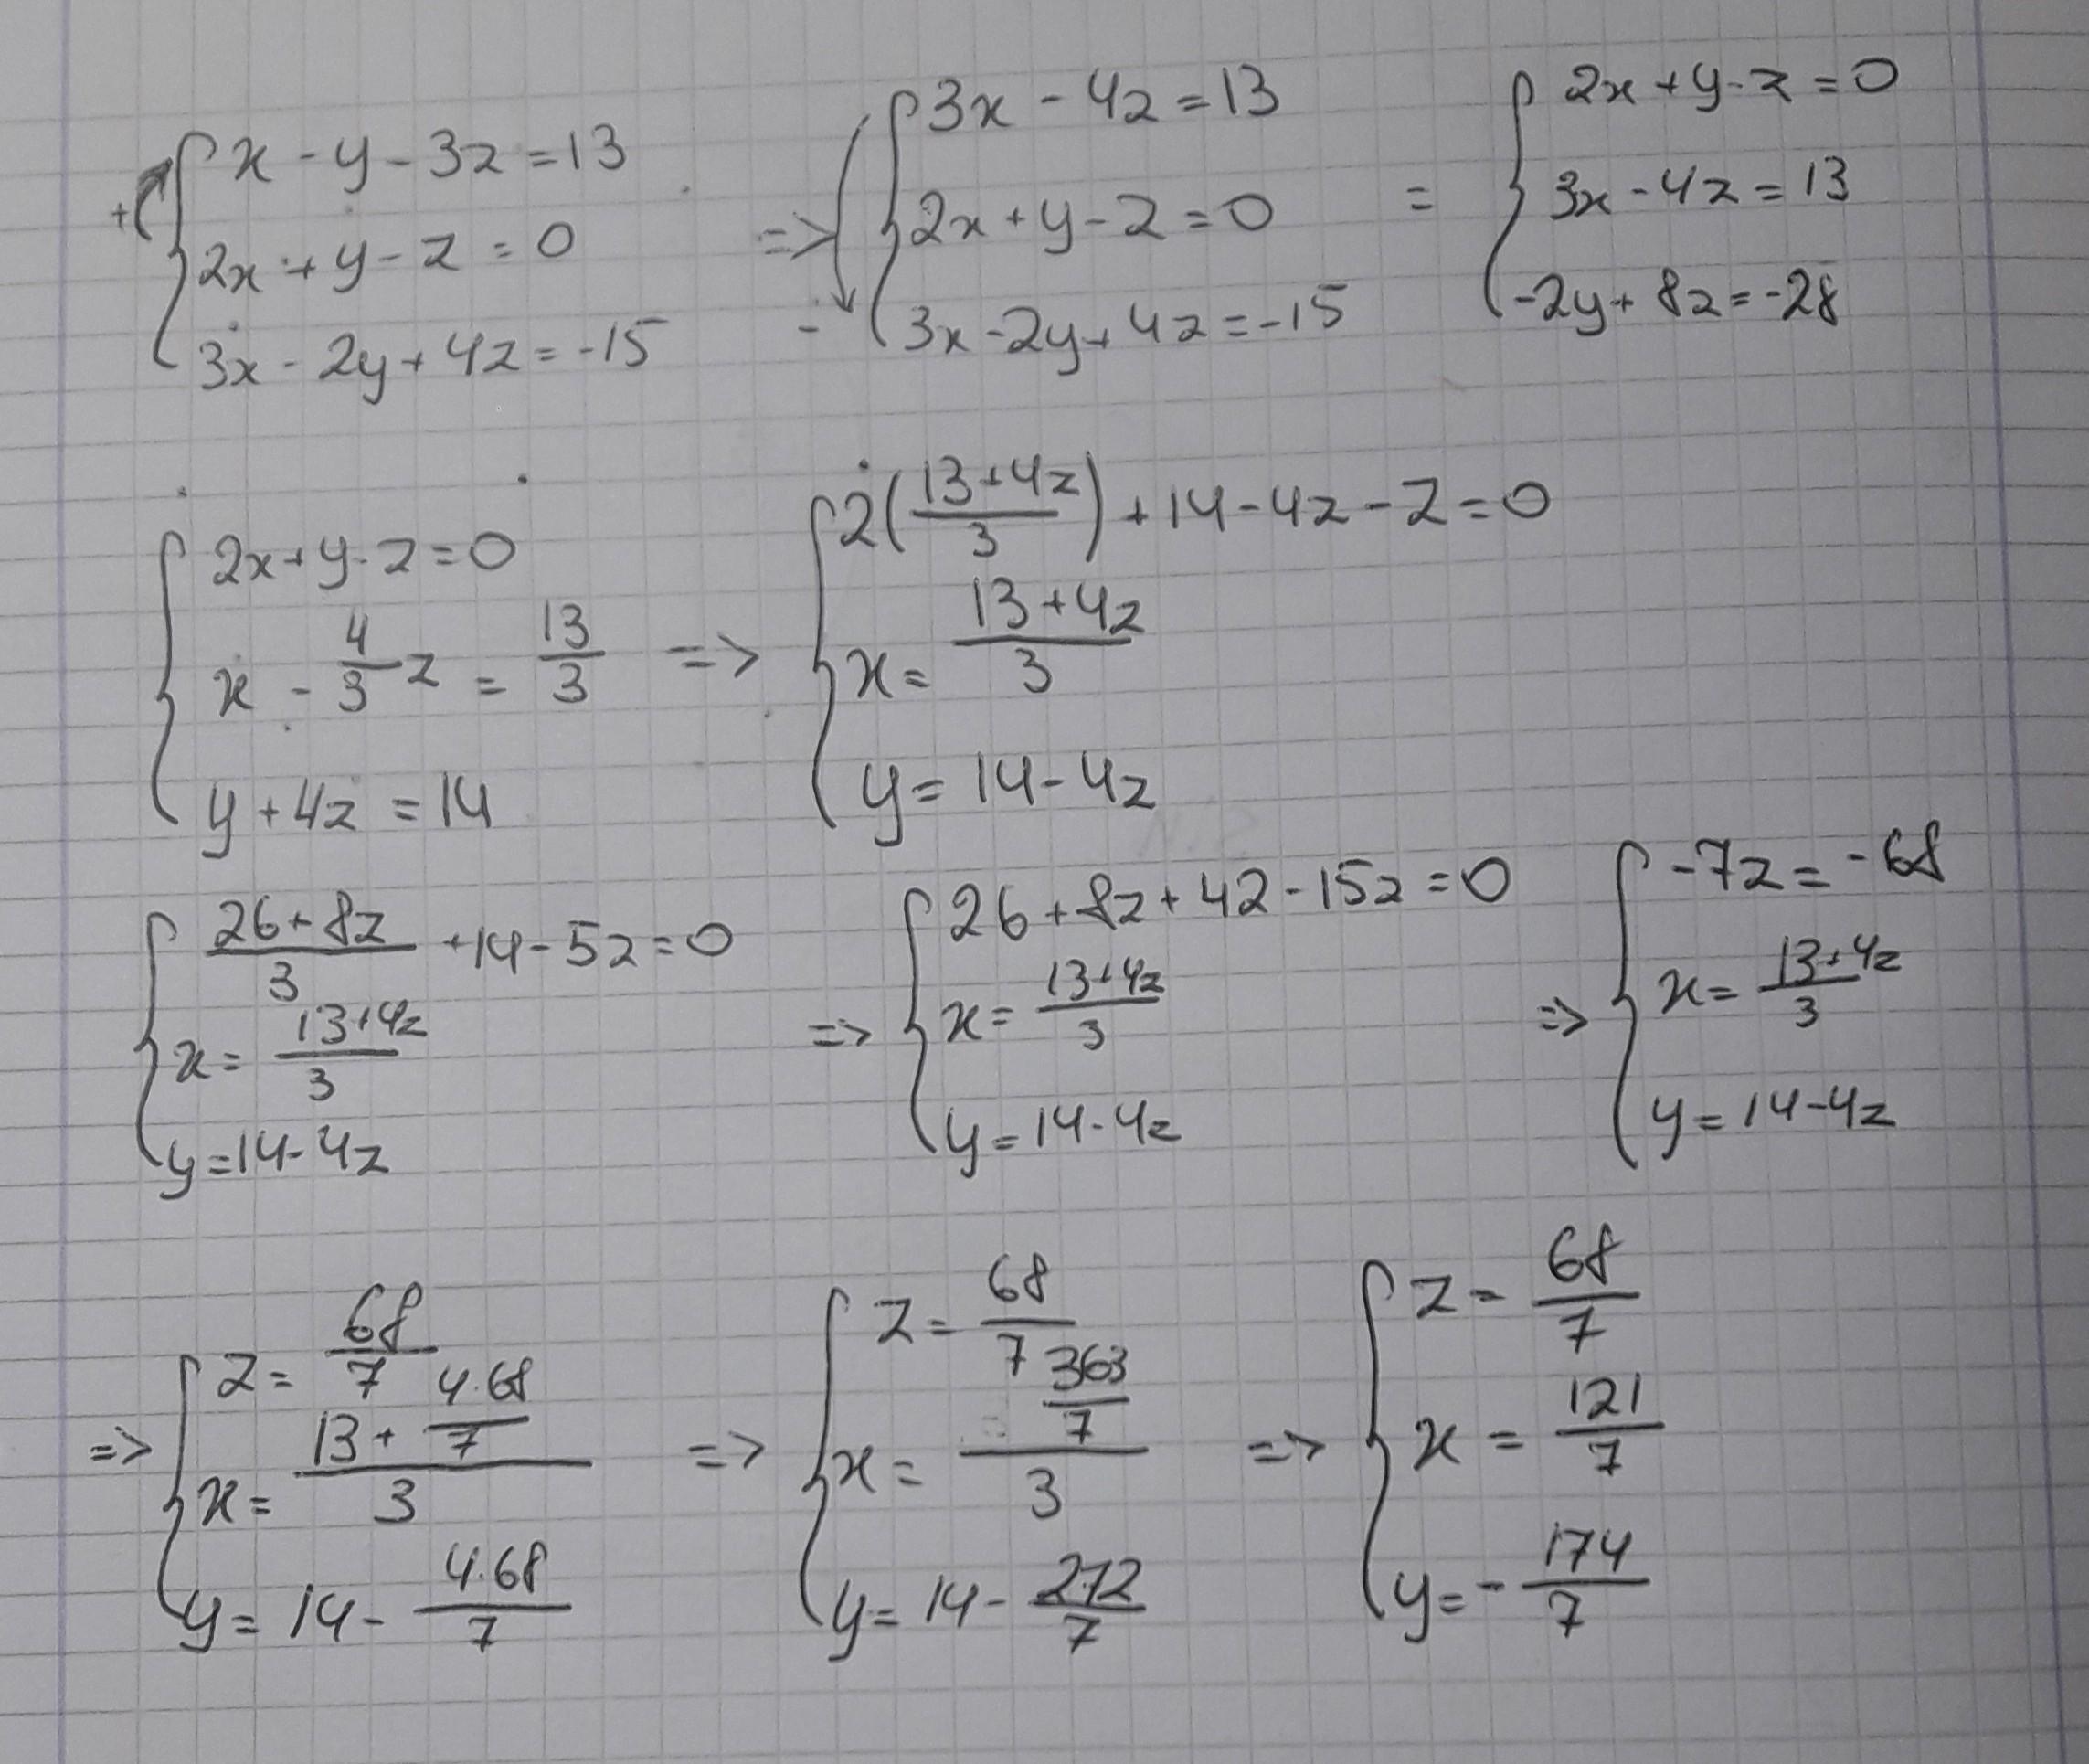 x - y - 3z = 13
+ 2x + y - z = 0
3x - 2y + 4z = -15
=> 3x - 4z = 13
2x + y - z = 0
- 3x - 2y + 4z = -15
= 2x + y - z = 0
3x - 4z = 13
-2y + 8z = -28
2x + y - z = 0
x - 4/3 z = 13/3
y + 4z = 14
=> 2((13+4z)/3) + 14 - 4z - z = 0
x = (13+4z)/3
y = 14 - 4z
(26+8z)/3 + 14 - 5z = 0
x = (13+4z)/3
y = 14 - 4z
=> 26 + 8z + 42 - 15z = 0
x = (13+4z)/3
y = 14 - 4z
=> -7z = -68
x = (13+4z)/3
y = 14 - 4z
=> z = 68/7
x = (13 + (4·68)/7)/3
y = 14 - (4·68)/7
=> z = 68/7
x = (363/7)/3
y = 14 - 272/7
=> z = 68/7
x = 121/7
y = - 174/7